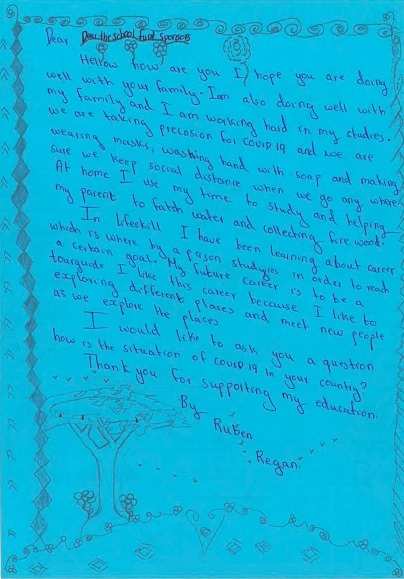 Dear the school fund sponsors
Hellow how are you I hope you are doing
well with your family. I am also doing well with
my family and I am working hard in my studies.
we are taking precosion for covid 19 and we are
wearing masks, washing hand with soap and making
sure we keep social distance when we go any where
At home I use my time to study and helping
my parent to fatch water and collecting fire wood.
In lifeskill I have been learning about career
which is where by a person studyies in order to reach
a certain goal. My future career is to be a
tourguide I like this career because I like to
exploring different places and meet new people
as we explore the places
I would like to ask you a question
how is the situation of covid 19 in your country?
Thank you for supporting my education.
By
Ruben
Regan.